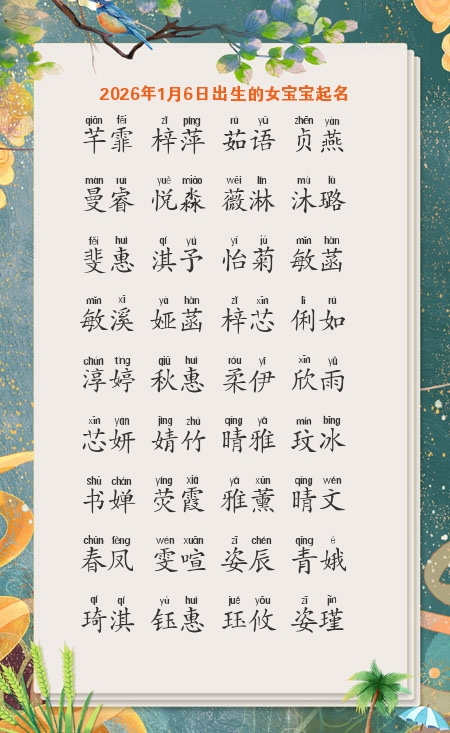 2026年1月6日出生的女宝宝起名
qiān fēi zǐ píng rú yǔ zhēn yàn
芊霏 梓萍 茹语 贞燕
màn ruì yuè miǎo wēi lín mù lù
曼睿 悦淼 薇淋 沐璐
fěi huì qí yǔ yí jú mǐn hàn
斐惠 淇予 怡菊 敏菡
mǐn xī yà hàn zǐ xīn lì rú
敏溪 娅菡 梓芯 俐如
chún tíng qiū huì róu yī xīn yǔ
淳婷 秋惠 柔伊 欣雨
xīn yán jìng zhú qíng yǎ mín bīng
芯妍 婧竹 晴雅 玟冰
shū chán yíng xiá yǎ xūn qíng wén
书婵 荧霞 雅薰 晴文
chūn fèng wén xuān zī chén qīng é
春凤 雯喧 姿辰 青娥
qí qí yù huì jué yōu zī jǐn
琦淇 钰惠 珏攸 姿瑾